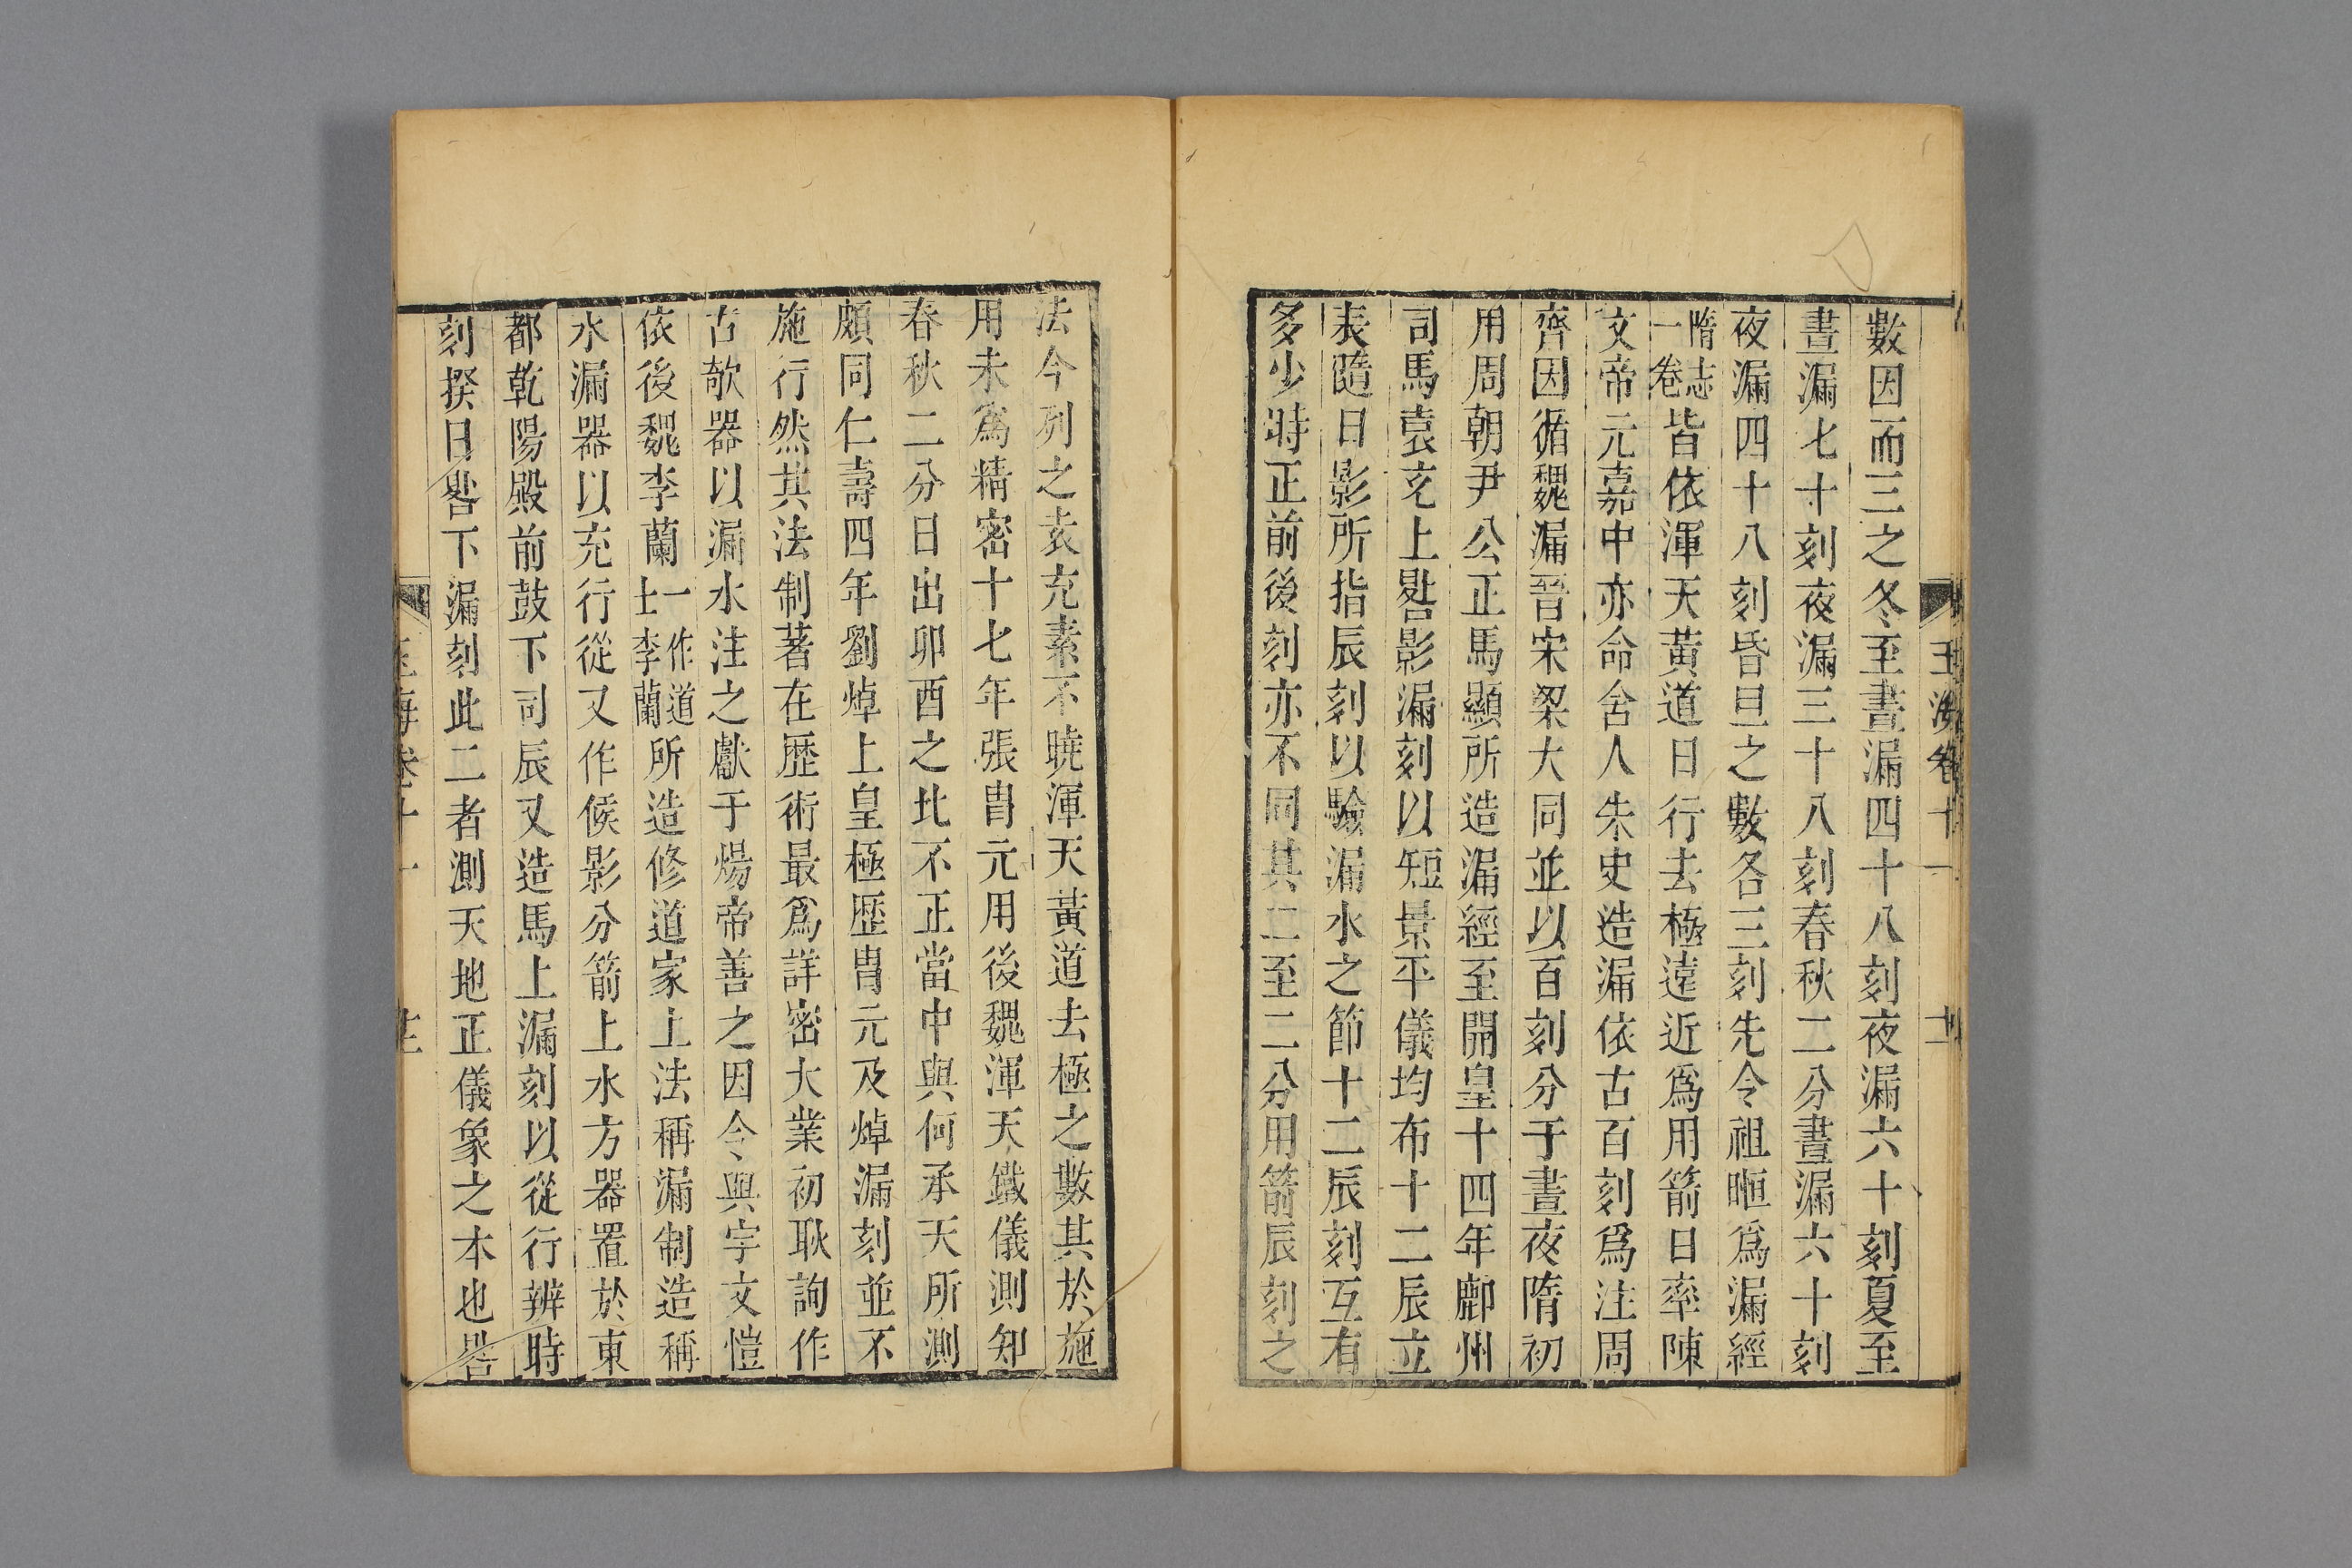 玉海卷十一
數因而三之冬至晝漏四十八刻夜漏六十刻夏至
晝漏七十刻夜漏三十八刻春秋二分晝漏六十刻
夜漏四十八刻昏旦之數各三刻先令祖暅爲漏經
隋志一卷皆依渾天黃道日行去極遠近爲用箭日率陳
文帝元嘉中亦命舍人朱史造漏依古百刻爲注周
齊因循魏漏晉宋梁大同並以百刻分于晝夜隋初
用周朝尹公正馬顯所造漏經至開皇十四年鄜州
司馬袁充上晷影漏刻以短景平儀均布十二辰立
表隨日影所指辰刻以驗漏水之節十二辰刻互有
多少時正前後刻亦不同其二至二分用箭辰刻之
法今列之袁充素不曉渾天黃道去極之數其於施
用未爲精密十七年張胄元用後魏渾天鐵儀測知
春秋二分日出卯酉之北不正當中與何承天所測
頗同仁壽四年劉焯上皇極歷胄元及焯漏刻並不
施行然其法制著在歷術最爲詳密大業初耿詢作
古欹器以漏水注之獻于煬帝善之因令與宇文愷
依後魏李蘭一作道士李蘭所造修道家上法稱漏制造稱
水漏器以充行從又作候影分箭上水方器置於東
都乾陽殿前鼓下司辰又造馬上漏刻以從行辨時
刻揆日晷下漏刻此二者測天地正儀象之本也晷
玉海卷十一